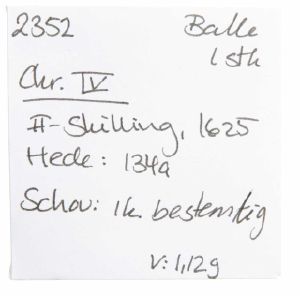 2352 Balle
1 stk
Chr. IV
II-Skilling, 1625
Hede: 134a
Schou: Ik bestemtig
V: 1,12g